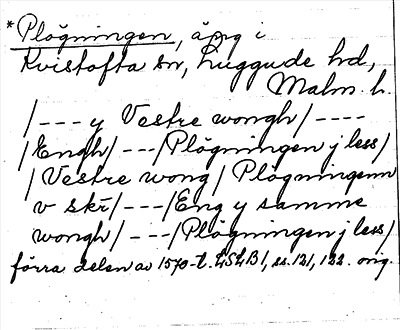 *Plögningen, åpg i
Kvistofta sn, Luggude hd,
Malm. l.
/--- y Vestre wongh/----
/Engh/---/Plögningen j less/
/Vestre wong/Plögningenn
v skr̄/---/Eng y samme
wongh/---/Plögningen j less/
förra delen av 1570-t. LSLB1, ss. 121, 122. orig.